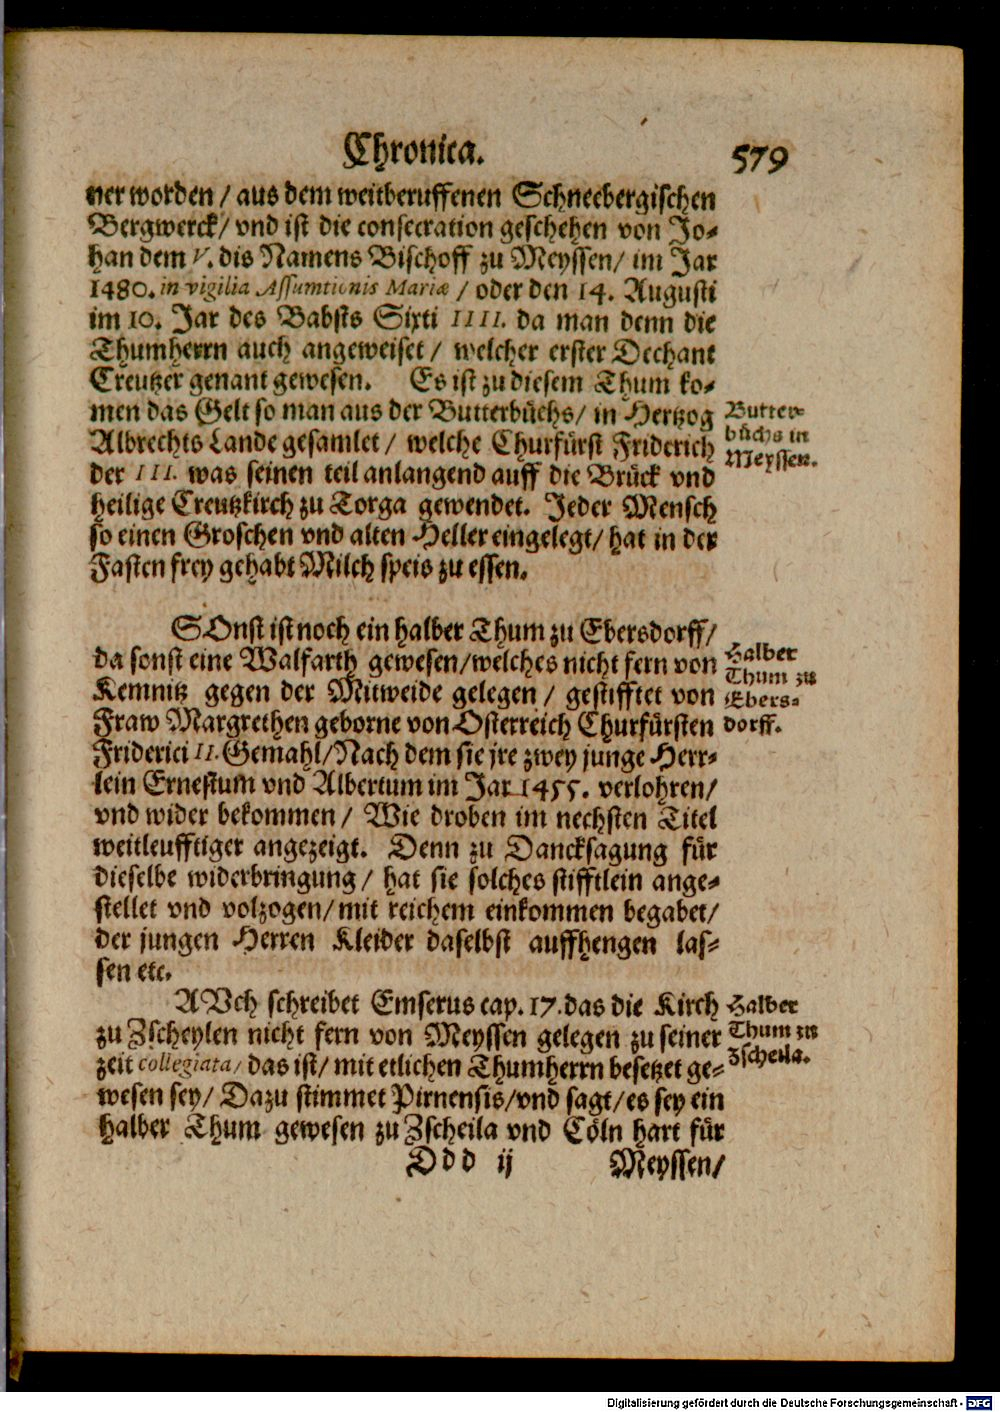 Chronica. 579
ner worden / aus dem weitberuffenen Schneebergischen
Bergwerck / vnd ist die consecration geschehen von Jo-
han dem V. dis Namens Bischoff zu Meyssen / im Jar
1480. in vigilia Assumtionis Mariæ / oder den 14. Augusti
im 10. Jar des Babsts Sixti IIII. da man denn die
Thumherrn auch angeweiset / welcher erster Dechant
Creutzer genant gewesen. Es ist zu diesem Thum ko-
men das Gelt so man aus der Butterbüchs / in Hertzog
Albrechts Lande gesamlet / welche Churfürst Friderich
der III. was seinen teil anlangend auff die Brück vnd
heilige Creutzkirch zu Torga gewendet. Jeder Mensch
so einen Groschen vnd alten Heller eingelegt / hat in der
Fasten frey gehabt Milch speis zu essen.
Butter-
büchs in
Meyssen.
SOnst ist noch ein halber Thum zu Ebersdorff /
da sonst eine Walfarth gewesen / welches nicht fern von
Kemnitz gegen der Mitweide gelegen / gestifftet von
Fraw Margrethen geborne von Osterreich Churfürsten
Friderici II. Gemahl / Nach dem sie jre zwey junge Herr-
lein Ernestum vnd Albertum im Jar 1455. verlohren /
vnd wider bekommen / Wie droben im nechsten Titel
weitleufftiger angezeigt. Denn zu Dancksagung für
dieselbe widerbringung / hat sie solches stifftlein ange-
stellet vnd volzogen / mit reichem einkommen begabet /
der jungen Herren Kleider daselbst auffhengen las-
sen etc.
Halber
Thum zu
Ebers-
dorff.
AVch schreibet Emserus cap. 17. das die Kirch
zu Zscheylen nicht fern von Meyssen gelegen zu seiner
zeit collegiata / das ist / mit etlichen Thumherrn besetzet ge-
wesen sey / Dazu stimmet Pirnensis / vnd sagt / es sey ein
halber Thum gewesen zu Zscheila vnd Cöln hart für
Halber
Thum zu
Zscheila.
Ddd ij Meyssen /
Digitalisierung gefördert durch die Deutsche Forschungsgemeinschaft - DFG